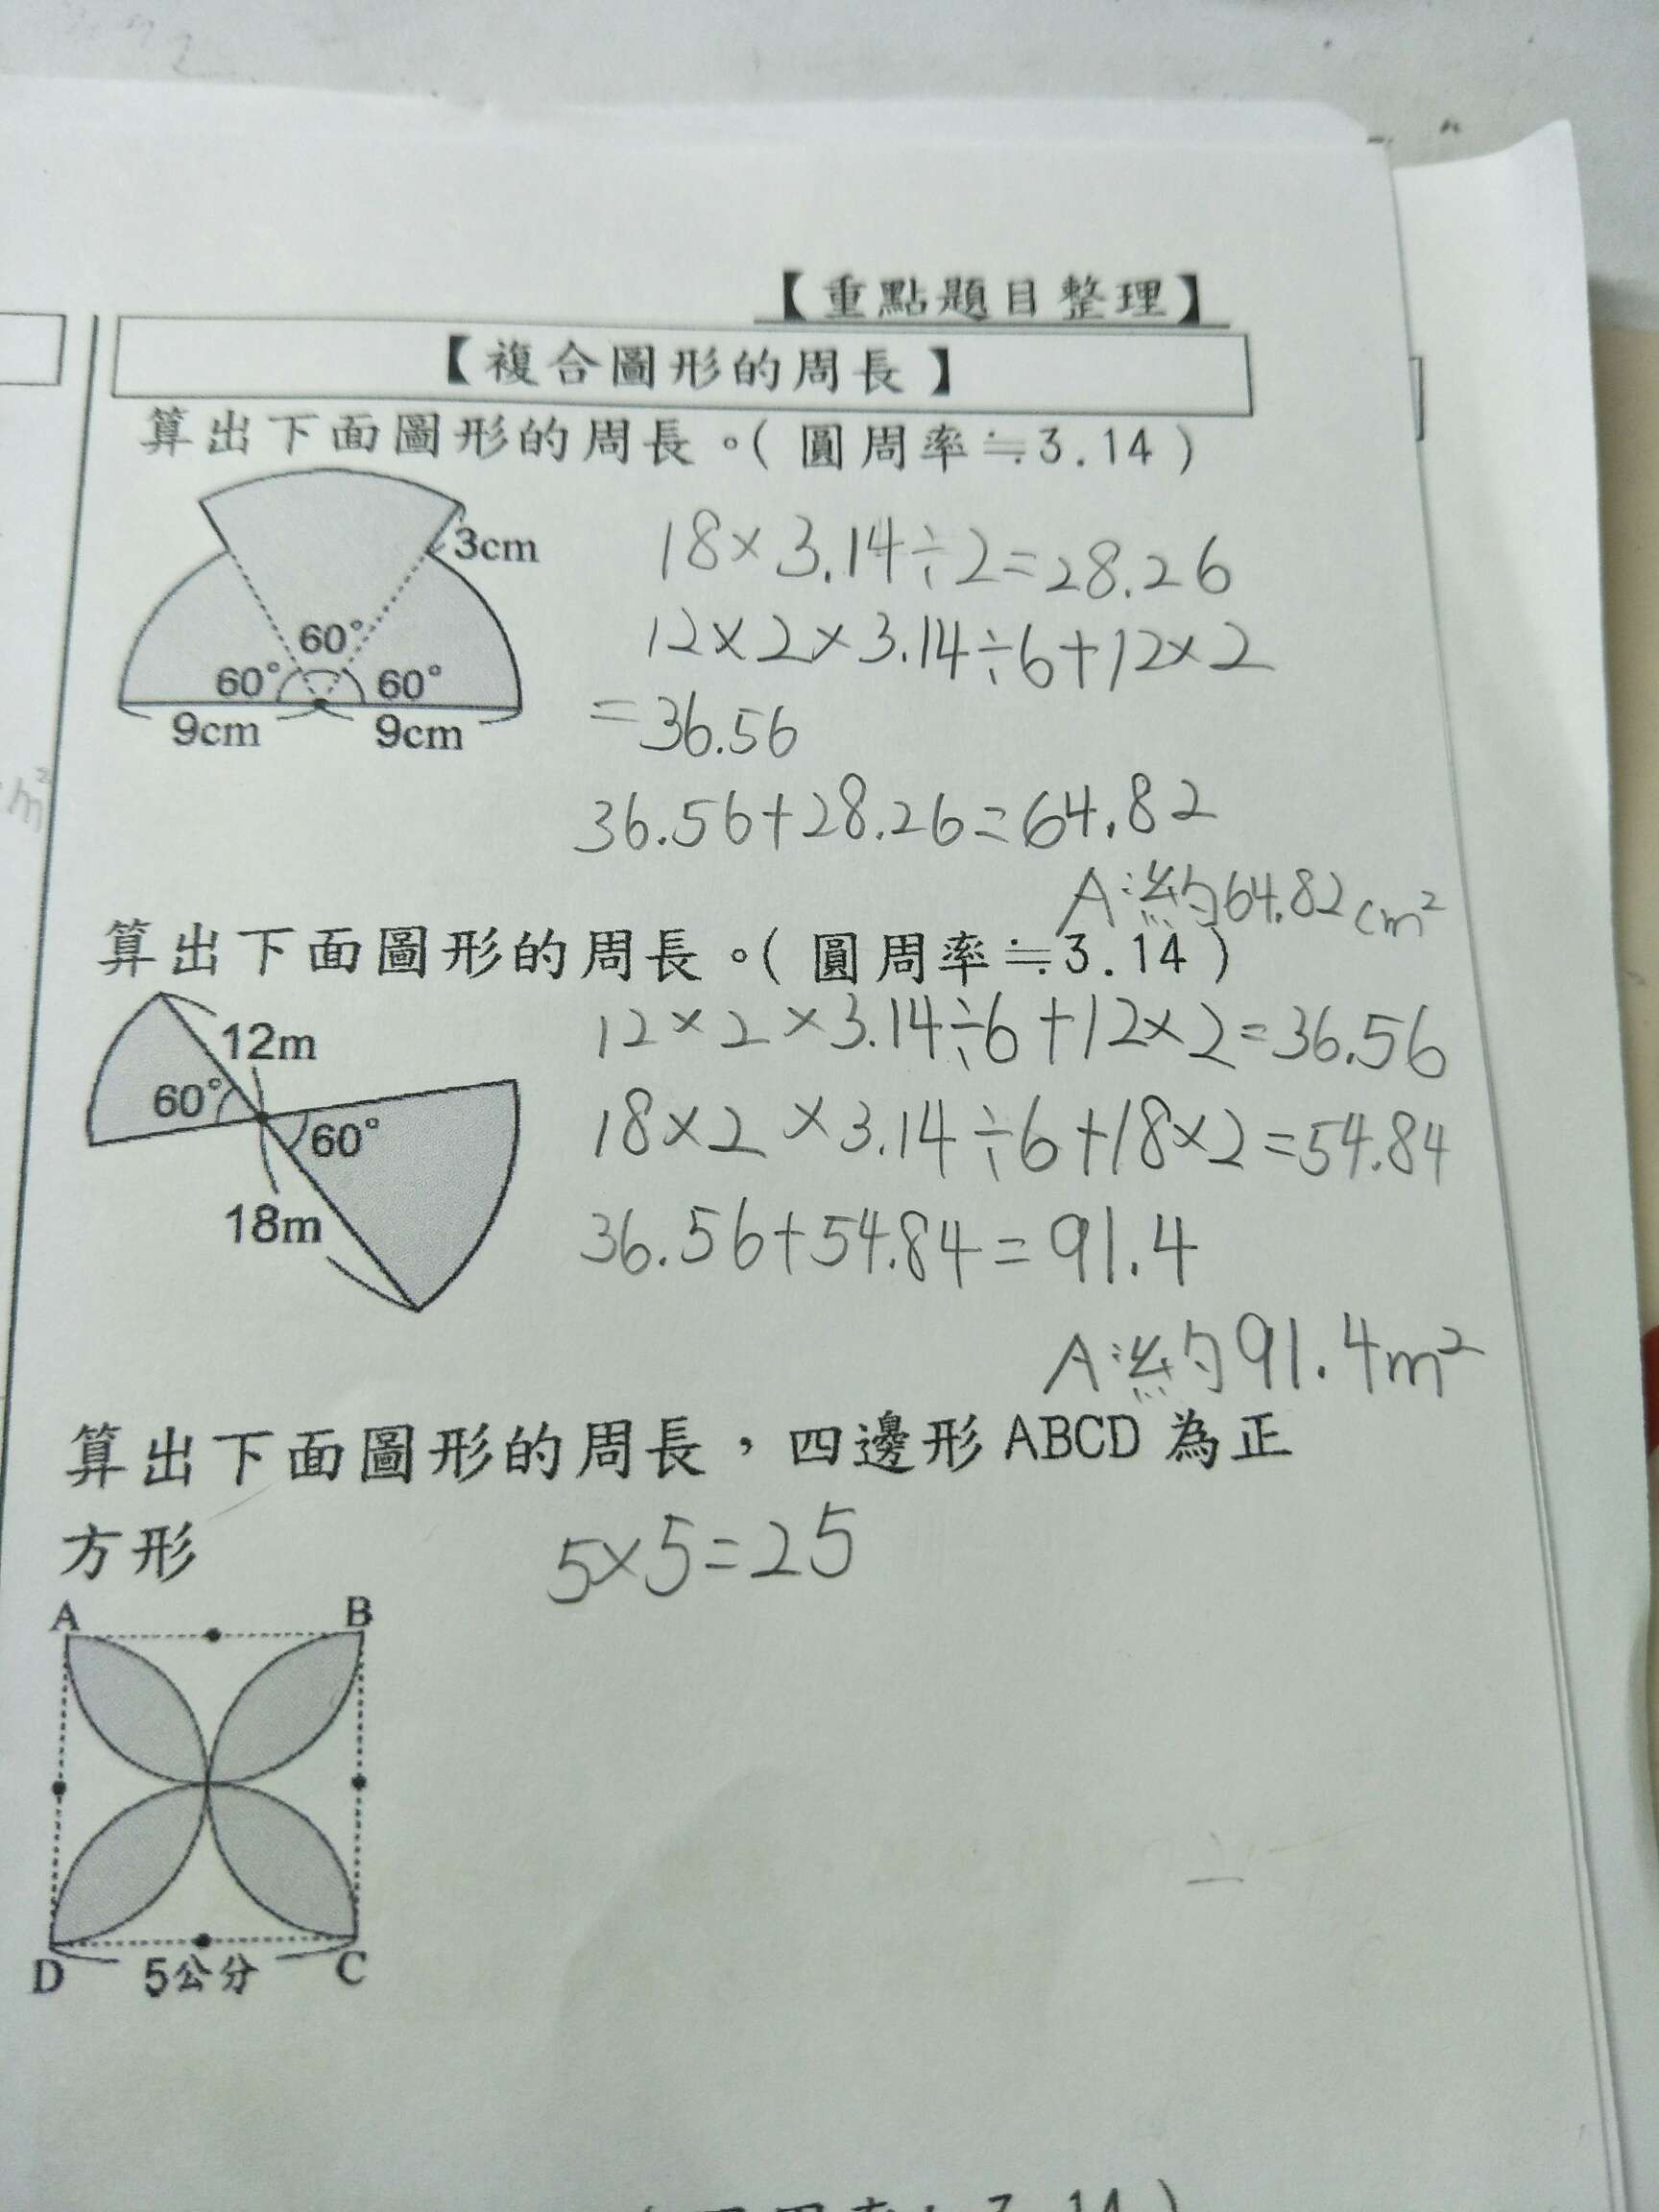 【重點題目整理】
【複合圖形的周長】
算出下面圖形的周長。(圓周率≒3.14)
3cm
60°
60°
60°
9cm
9cm
18×3.14÷2=28.26
12×2×3.14÷6+12×2
=36.56
36.56+28.26=64.82
A:約64.82cm²
算出下面圖形的周長。(圓周率≒3.14)
12m
60°
60°
18m
12×2×3.14÷6+12×2=36.56
18×2×3.14÷6+18×2=54.84
36.56+54.84=91.4
A:約91.4m²
算出下面圖形的周長，四邊形ABCD為正
方形
5×5=25
A
B
D
5公分
C
3.14)